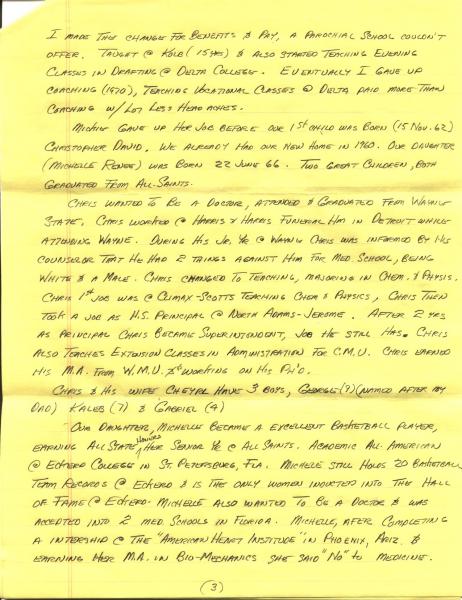 I MADE THE CHANGE FOR BENEFITS & PAY, A PAROCHIAL SCHOOL COULDN'T
OFFER. TAUGHT @ KOLB (15 YRS) & ALSO STARTED TEACHING EVENING
CLASSES IN DRAFTING @ DELTA COLLEGE. EVENTUALLY I GAVE UP
COACHING (1970), TEACHING VOCATIONAL CLASSES @ DELTA PAID MORE THAN
COACHING W/LOT LESS HEADACHES.
GAVE UP HER JOB BEFORE OUR 1ST CHILD WAS BORN (15 NOV. 62)
CHRISTOPHER DAVID. WE ALREADY HAD OUR NEW HOME IN 1960. OUR DAUGHTER
(MICHELLE RENEE) WAS BORN 22 JUNE 66. TWO GREAT CHILDREN, BOTH
GRADUATED FROM ALL-SAINTS.
CHRIS WANTED TO BE A DOCTOR, ATTENDED & GRADUATED FROM WAYNE
STATE. CHRIS WORKED @ HARRIS & HARRIS FUNERAL HM IN DETROIT WHILE
ATTENDING WAYNE. DURING HIS JR. YR @ WAYNE CHRIS WAS INFORMED BY HIS
COUNSELOR THAT HE HAD 2 THINGS AGAINST HIM FOR MED. SCHOOL, BEING
WHITE & A MALE. CHRIS CHANGED TO TEACHING, MAJORING IN CHEM. & PHYSICS.
CHRIS 1ST JOB WAS @ CLIMAX-SCOTTS TEACHING CHEM & PHYSICS, CHRIS THEN
TOOK A JOB AS H.S. PRINCIPAL @ NORTH ADAMS-JEROME. AFTER 2 YRS
AS PRINCIPAL CHRIS BECAME SUPERINTENDENT, JOB HE STILL HAS. CHRIS
ALSO TEACHES EXTENSION CLASSES IN ADMINISTRATION FOR C.M.U. CHRIS EARNED
HIS M.A. FROM W.M.U. & WORKING ON HIS PH'D.
CHRIS & HIS WIFE CHEYRL HAVE 3 BOYS, GEORGE (9) (NAMED AFTER MY
DAD) KALEB (7) & GABRIEL (4)
OUR DAUGHTER, MICHELLE BECAME A EXCELLENT BASKETBALL PLAYER,
EARNING ALL STATE HONORS HER SENIOR YR @ ALL SAINTS. ACADEMIC ALL-AMERICAN
@ ECKERD COLLEGE IN ST PETERSBURG, FLA. MICHELE STILL HOLDS 20 BASKETBALL
TEAM RECORDS @ ECKERD & IS THE ONLY WOMEN INDUCTED INTO THE HALL
OF FAME @ ECKERD. MICHELLE ALSO WANTED TO BE A DOCTOR & WAS
ACCEPTED INTO 2 MED. SCHOOLS IN FLORIDA. MICHELLE, AFTER COMPLETING
A INTERSHIP @ THE "AMERICAN HEART INSTITUTE" IN PHOENIX, ARIZ. &
EARNING HER M.A. IN BIO-MECHANICS SHE SAID "NO" TO MEDICINE.
(3)